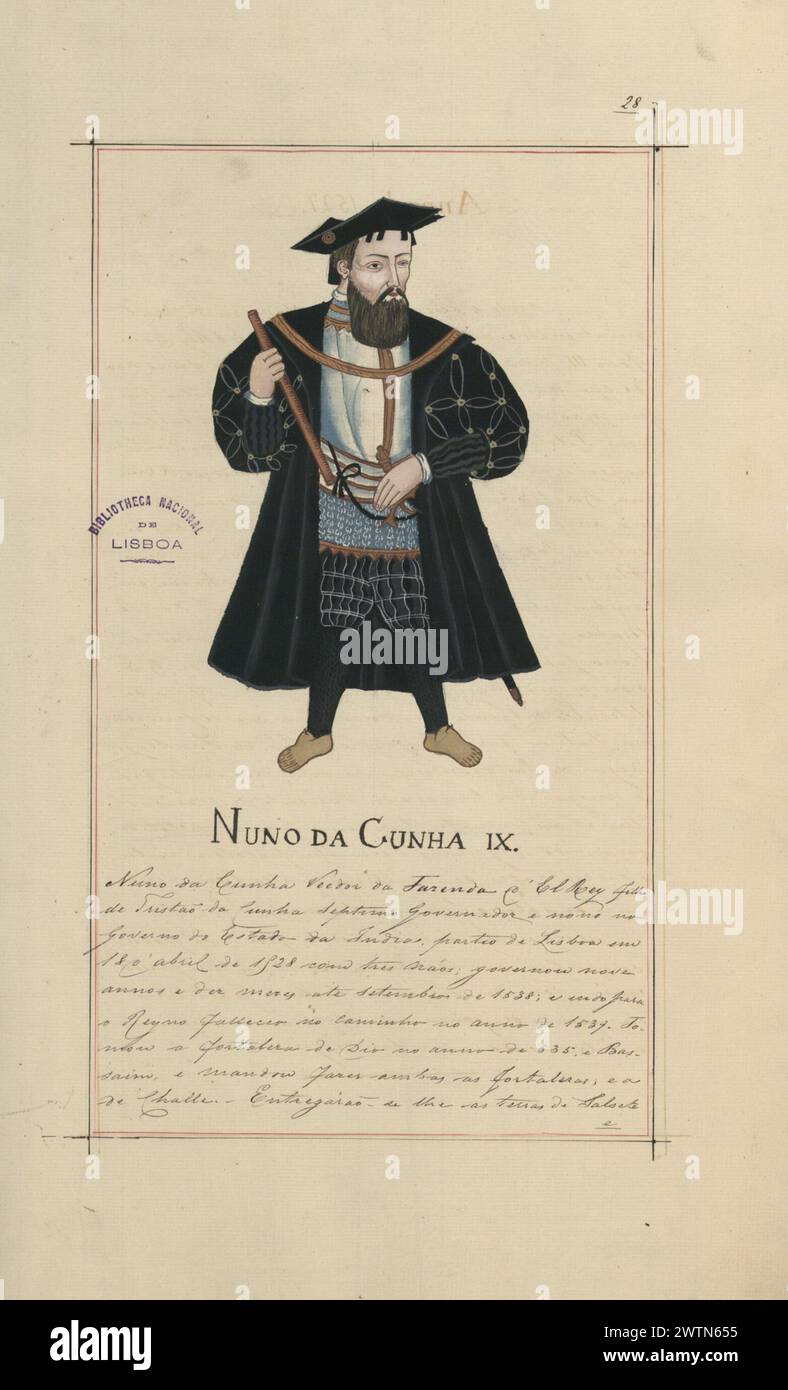 28
BIBLIOTHECA NACIONAL
DE
LISBOA
NUNO DA CUNHA IX.
Nuno da Cunha Veedor da Fazenda d'El Rey filho
de Tristão da Cunha septimo Governador e nono no
Governo do Estado da India, partio de Lisboa em
18 d'abril de 1528 com tres náos; governou nove
annos e dez mezes até setembro de 1538; e indo para
o Reyno falleceo no caminho no anno de 1539. To-
mou a fortaleza de Dio no anno de 535. e Bas-
saim, e mandou fazer ambas as fortalezas, e a
de Challe. - Entregárão-se lhe as terras de Salsete
e
alamy
alamy
Image ID: 2WTN655
www.alamy.com